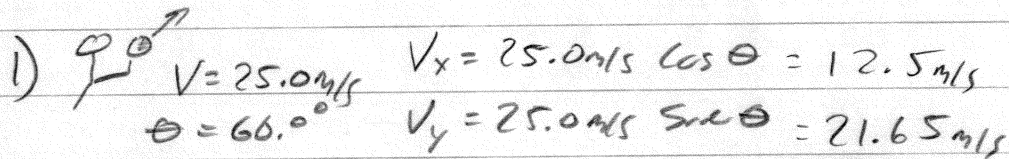 1) V = 25.0 m/s Vx = 25.0 m/s Cos θ = 12.5 m/s
θ = 60.0° Vy = 25.0 m/s Sin θ = 21.65 m/s